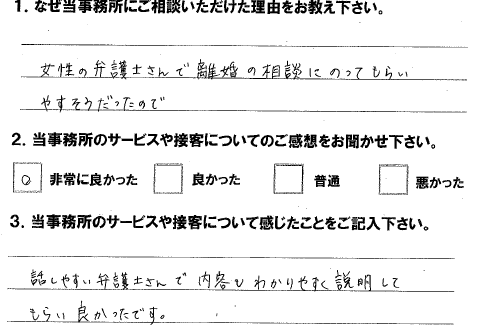 1. なぜ当事務所にご相談いただけた理由をお教え下さい。
女性の弁護士さんで離婚の相談にのってもらい
やすそうだったので
2. 当事務所のサービスや接客についてのご感想をお聞かせ下さい。
○ 非常に良かった 良かった 普通 悪かった
3. 当事務所のサービスや接客について感じたことをご記入下さい。
話しやすい弁護士さんで内容もわかりやすく説明して
もらい良かったです。